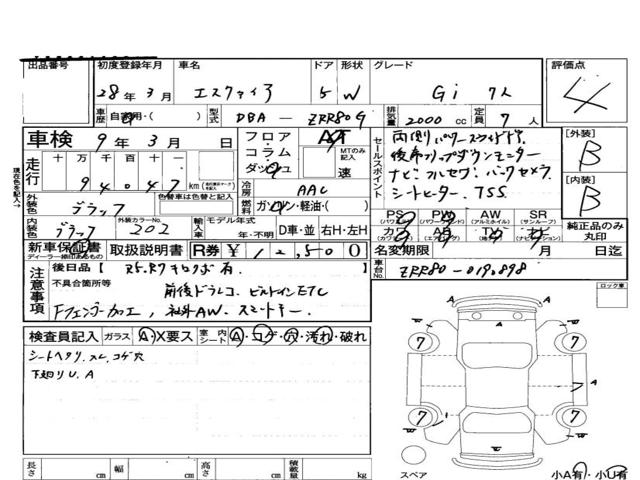 出品番号 初度登録年月 車名 ドア 形状 グレード 評価点
28年3月 エスクァイア 5 W Gi 7人 4
車歴 自家用・( ) 型式 DBA－ZRR80G 排気量 2000cc 定員 7人
車検 9年3月 日 フロア AT セールスポイント 両側パワースライドドア. [外装] B
走行 十万千百十 km コラム MTのみ記入 後席フリップダウンモニター
94047 ダッシュ 速 ナビ・フルセグ・バックカメラ [内装] B
現在色を記入→ 外装色 ブラック 色替車は色替と記入 冷房 AAC シートヒーター. TSS
燃料 ガソリン・軽油・( ) PS (パワーステアリング) PW (パワーウィンドウ) AW (アルミホイル) SR (サンルーフ) 純正品のみ丸印
内装色 ブラック 外装カラーNo. 202 輸入車 モデル年式 年・不明 D車・並 右H・左H カワ AB (エアバッグ) TV ナビ
新車保証書 ディーラー捺印あるもの 取扱説明書 R券 ¥12,500 名変期限 / 月 日迄
注意事項 後日品 [ ] 車台No. ZRR80-0190898
不具合箇所等 前後ドラレコ、ビルトインETC ロック車
Fフェンダー加工, 社外AW. スマートキー.
検査員記入 ガラス A・X要ス 室内シート A・コゲ・穴・汚れ・破れ
シートヘタリ. スレ. コゲ穴
下廻りU.A
7 7
A A
7 7
長さ cm 幅 cm 高さ cm 積載量 kg スペア 小A有・小U有